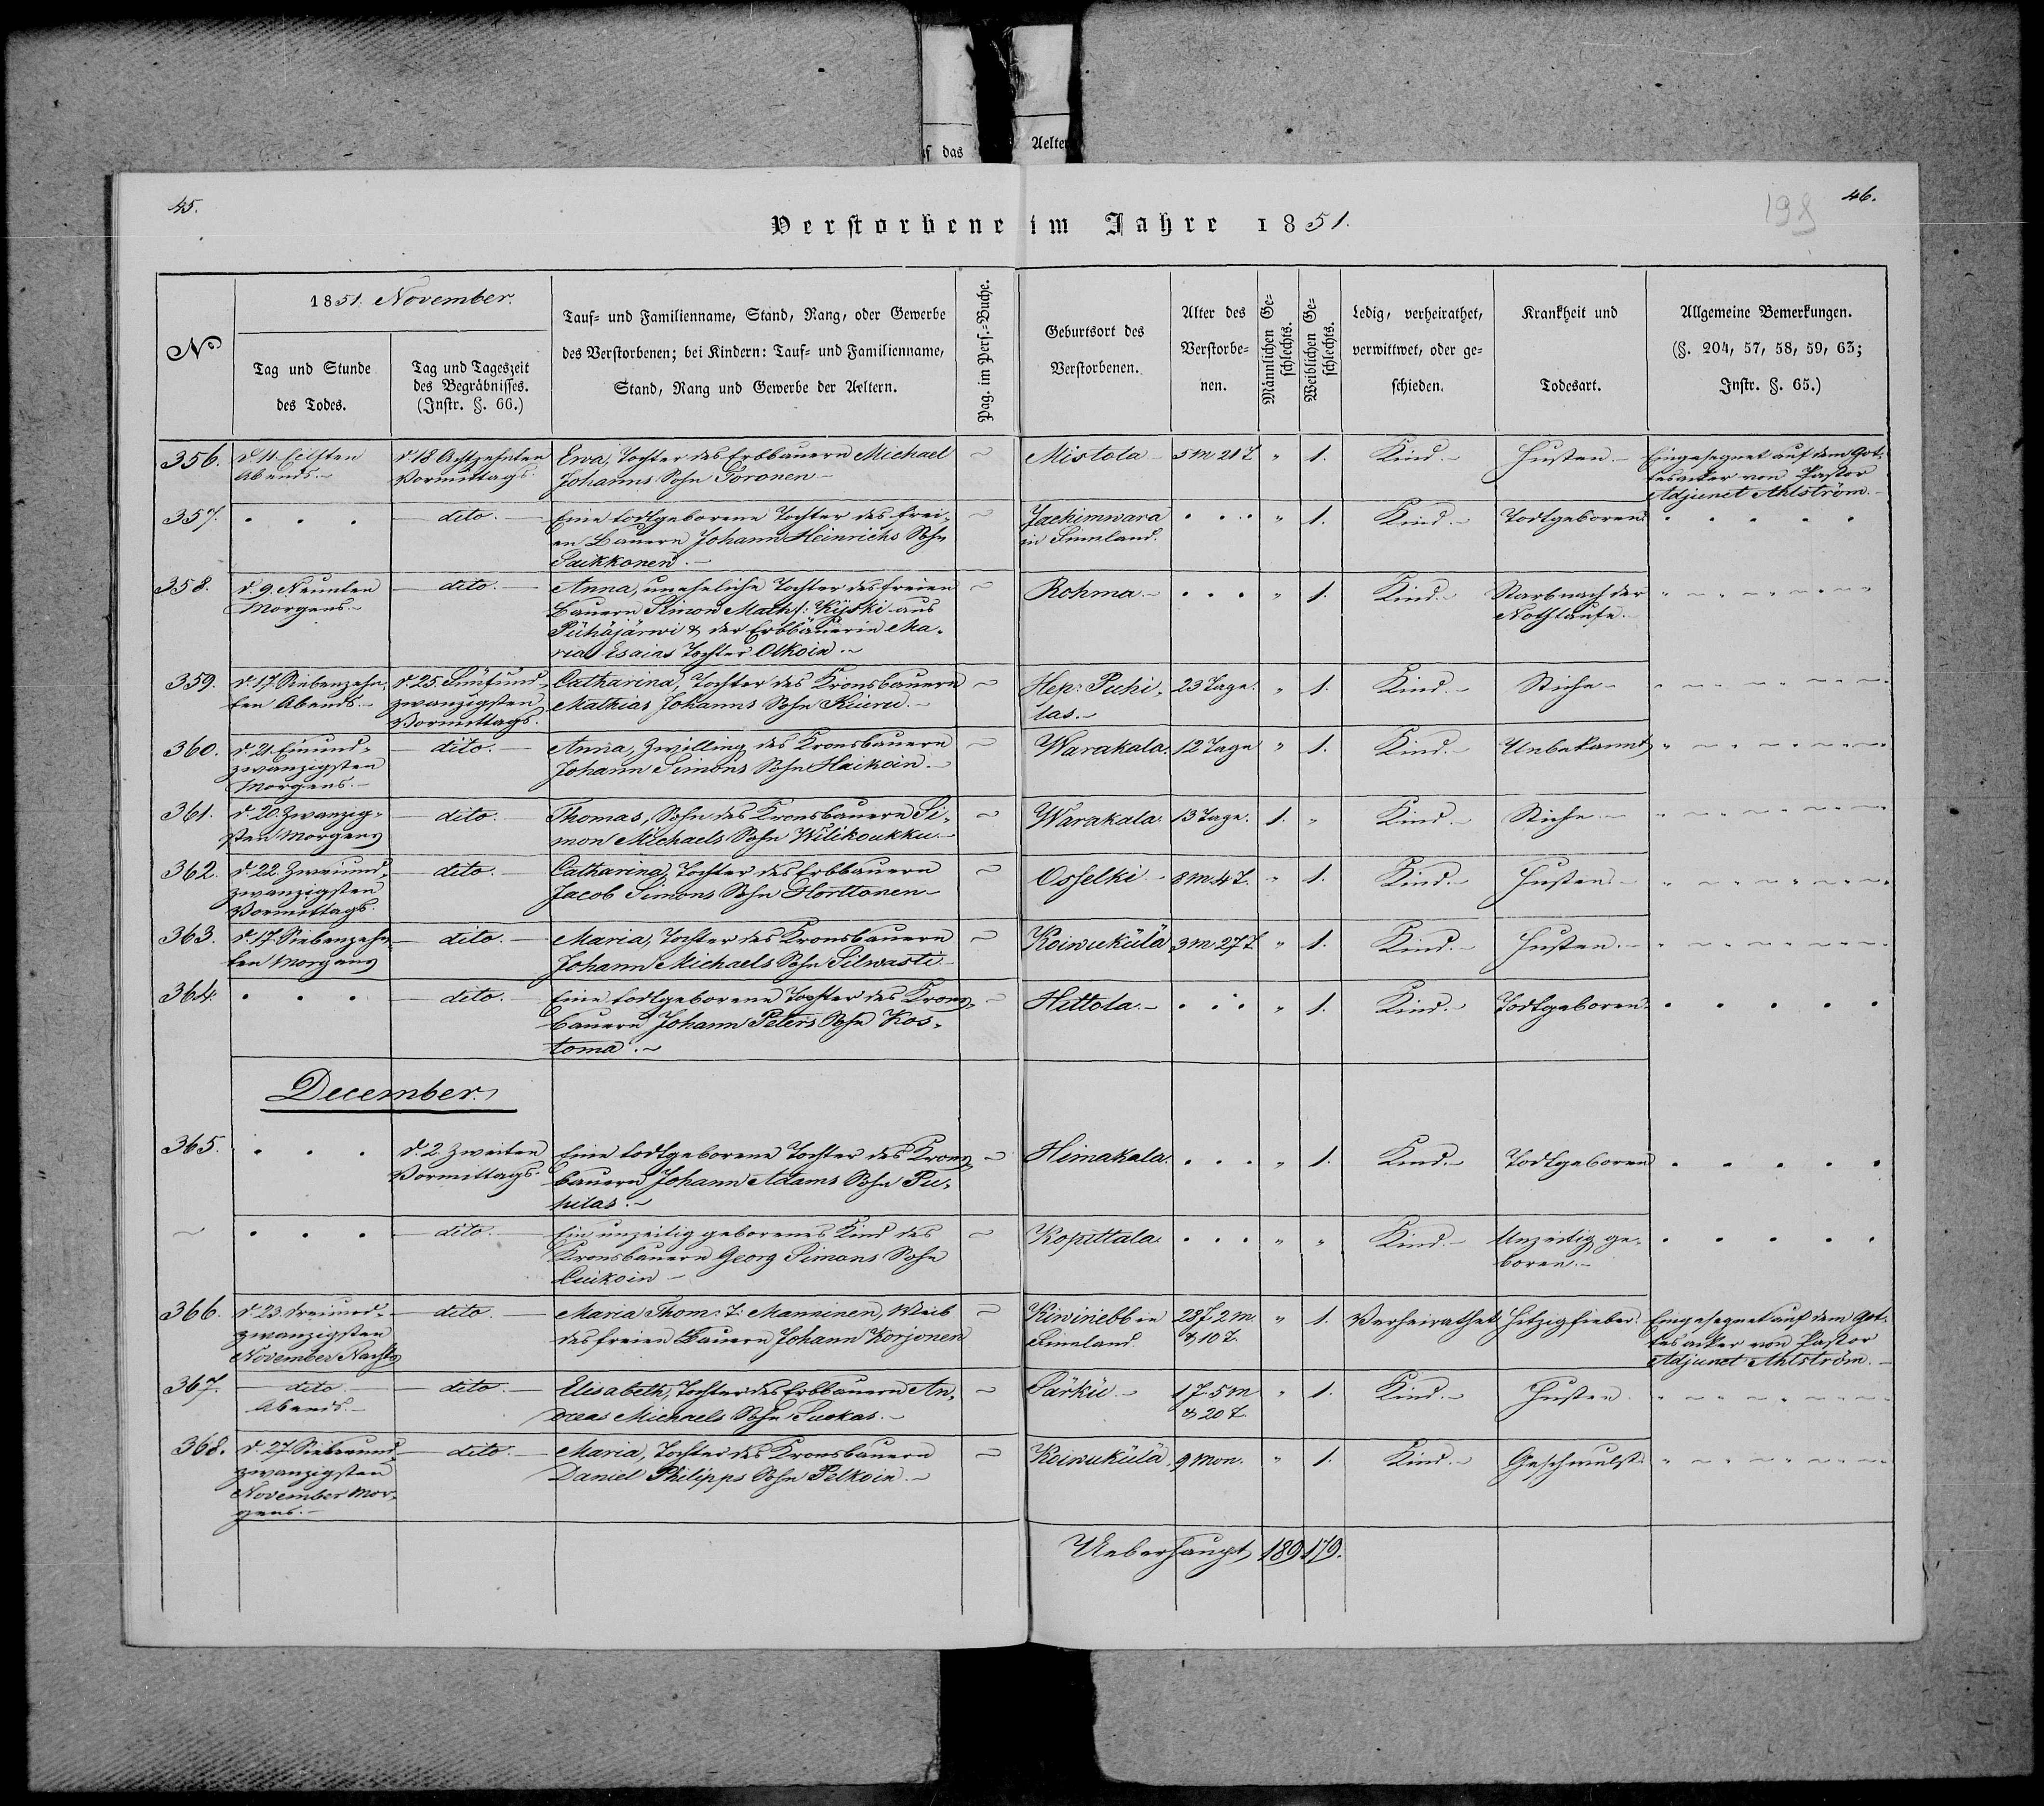 f das
Aelter
45.
46.
198
Verstorbene im Jahre 1851.
N°
1851. November.
Tag und Stunde
des Todes.
Tag und Tageszeit
des Begräbnisses.
(Instr. §. 66.)
Tauf- und Familienname, Stand, Rang, oder Gewerbe
des Verstorbenen; bei Kindern: Tauf- und Familienname,
Stand, Rang und Gewerbe der Aeltern.
Pag. im Pers.-Buche.
Geburtsort des
Verstorbenen.
Alter des
Verstorbe-
nen.
Männlichen Ge-
schlechts.
Weiblichen Ge-
schlechts.
Ledig, verheirathet,
verwittwet, oder ge-
schieden.
Krankheit und
Todesart.
Allgemeine Bemerkungen.
(§. 204, 57, 58, 59, 63;
Instr. §. 65.)
356.
d. 11. Eilften
Abends.
d. 18 Achtzehnten
Vormittags.
Ewa, Tochter des Erbbauern Michael
Johanns Sohn Toronen
Mistola
5 M 21 T.
" 1.
Kind.
Husten.
Eingesegnet auf dem Got-
tesacker von Pastor
Adjunct Ahlström.
357.
. . .
dito.
Eine todtgeborene Tochter des frei-
en Bauern Johann Heinrichs Sohn
Paikkonen.
Jachimwara
in Finnland.
. . .
" 1.
Kind.
Todtgeboren.
. . . . .
358.
d. 9. Neunten
Morgens.
dito.
Anna, uneheliche Tochter des freien
Bauern Simon Maths: Kijski aus
Pühäjärwi & der Erbbäuerin Ma-
ria Esaias Tochter Otkoin.
Rohma.
. . .
" 1.
Kind.
Starb nach der
Nothtaufe.
359.
d. 17. Siebenzehn-
ten Abends.
d. 25. Fünfund-
zwanzigsten
Vormittags.
Catharina, Tochter des Kronsbauern
Mathias Johanns Sohn Kuuru.
Hep: Puhi-
las.
23 Tage.
" 1.
Kind.
Stiche
360.
d. 21. Einund-
zwanzigsten
Morgens.
dito.
Anna, Zwilling des Kronsbauern
Johann Simons Sohn Haikoin.
Warakala.
12 Tage
" 1.
Kind.
Unbekannt
361.
d. 20. Zwanzig-
sten Morgens
dito.
Thomas, Sohn des Kronsbauern Si-
mon Michaels Sohn Wilikoukku.
Warakala.
13 Tage.
1. "
Kind.
Stiche
362.
d. 22. Zweiund-
zwanzigsten
Vormittags.
dito.
Catharina, Tochter des Erbbauern
Jacob Simons Sohn Horttanen
Osselki
8 M 4 T.
" 1.
Kind.
Husten.
363.
d. 17. Siebenzehn-
ten Morgens
dito.
Maria, Tochter des Kronsbauern
Johann Michaels Sohn Silwasti
Koiwukülä
3 M. 27 T.
" 1.
Kind.
Husten.
364.
. . .
dito.
Eine todtgeborene Tochter des Krons-
bauern Johann Peters Sohn Kos-
toma.
Hittola.
. . .
" 1.
Kind.
Todtgeboren.
. . . . .
December.
365.
. . .
d. 2. Zweiten
Vormittags.
Eine todtgeborene Tochter des Krons-
bauern Johann Adams Sohn Pu-
hilas.
Himakala.
. . .
" 1.
Kind.
Todtgeboren
. . . . .
. . .
dito.
Ein unzeitig geborenes Kind des
Kronsbauern Georg Simons Sohn
Kuikoin
Kopittala.
. . .
" "
Kind.
Unzeitig ge-
boren.
. . . . .
366.
d. 23. Dreiund-
zwanzigsten
November Nachts
dito.
Maria Thom: T: Manninen, Weib
des freien Bauern Johann Korjonen
Kiwinebb in
Finnland.
28 J. 2 M.
& 10 T.
" 1.
Verheirathet
Hitzigfieber.
Eingesegnet auf dem Got-
tesacker von Pastor
Adjunct Ahlström.
367.
dito
Abends.
dito.
Elisabeth, Tochter des Erbbauern An-
dreas Michaels Sohn Suokas.
Särkü.
1 J. 5 M
& 20 T.
" 1.
Kind.
Husten.
368.
d. 27. Siebenund-
zwanzigsten
November Mor-
gens.
dito.
Maria, Tochter des Kronsbauern
Daniel Philipps Sohn Pelkoin.
Koiwukülä
9 Mon.
" 1.
Kind.
Geschwulst.
Ueberhaupt 189 179.